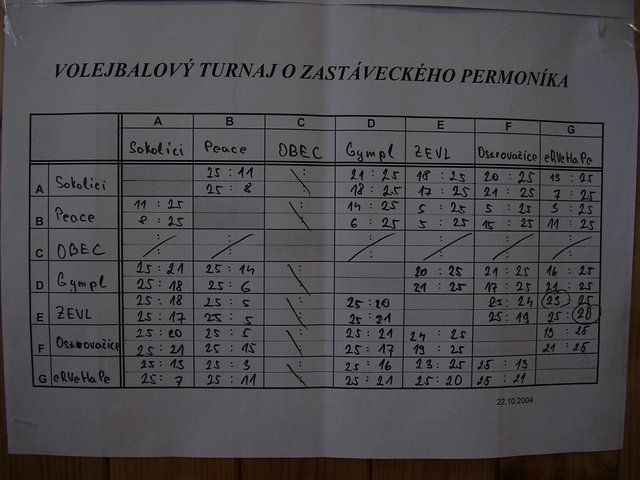 VOLEJBALOVÝ TURNAJ O ZASTÁVECKÉHO PERMONÍKA
A B C D E F G
Sokolíci Peace OBEC Gympl ZEVL Ostrovačice eRVeHaPe
A Sokolíci 25 : 11 : 21 : 25 18 : 25 20 : 25 13 : 25
25 : 8 : 18 : 25 17 : 25 21 : 25 7 : 25
B Peace 11 : 25 : 14 : 25 5 : 25 5 : 25 3 : 25
8 : 25 : 6 : 25 5 : 25 15 : 25 11 : 25
C OBEC : : : : : :
: : : : : :
D Gympl 25 : 21 25 : 14 : 20 : 25 21 : 25 16 : 25
25 : 18 25 : 6 : 21 : 25 17 : 25 21 : 25
E ZEVL 25 : 18 25 : 5 : 25 : 20 25 : 24 23 : 25
25 : 17 25 : 5 : 25 : 21 25 : 19 25 : 20
F Ostrovačice 25 : 20 25 : 5 : 25 : 21 24 : 25 13 : 25
25 : 21 25 : 15 : 25 : 17 19 : 25 21 : 25
G eRVeHaPe 25 : 13 25 : 3 : 25 : 16 23 : 25 25 : 13
25 : 7 25 : 11 : 25 : 21 25 : 20 25 : 21
22.10.2004